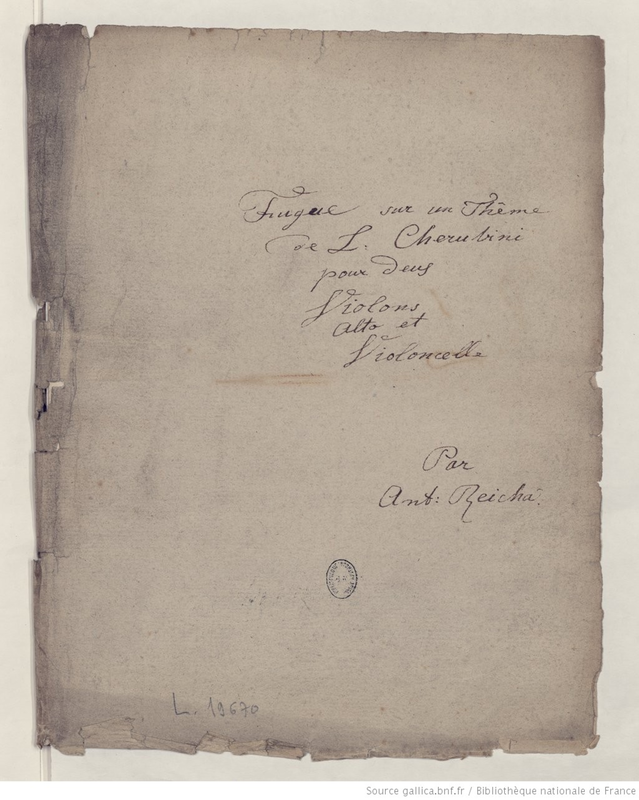 Fugue sur un Thême
de L. Cherubini
pour deus
Violons
alto et
Violoncelle
Par
Ant: Reicha.
L. 19670
Source gallica.bnf.fr / Bibliothèque nationale de France